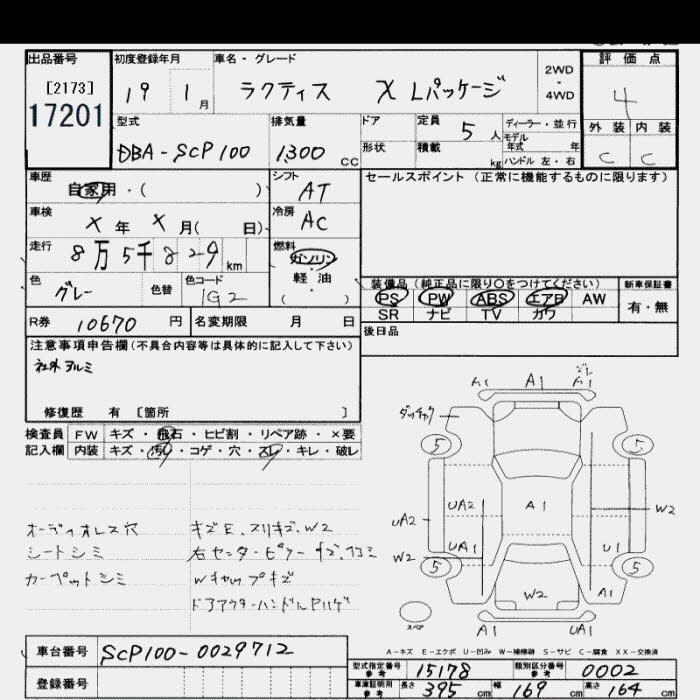 出品番号 初度登録年月 車名・グレード 2WD・4WD 評価点
[2173] 17201 19 1月 ラクティス X Lパッケージ 4
型式 排気量 ドア 定員 5人 ディーラー・並行 外装 内装
DBA-SCP100 1300cc 形状 積載 kg モデル年式 年 ハンドル 左・右 C C
車歴 自家用・( ) シフト AT セールスポイント(正常に機能するものに限ります)
車検 X年 X月( 日) 冷房 AC
走行 8万5千829km 燃料 ガソリン
軽油
色 グレー 色替 色コード 1G2 ( )
装備品(純正品に限り○をつけてください) 新車保証書
PS PW ABS エアB AW 有・無
SR ナビ TV カワ
R券 10670円 名変期限 月 日 後日品
注意事項申告欄(不具合内容等は具体的に記入して下さい)
社外アルミ
修復歴 有 [箇所 ]
検査員 FW キズ・飛石・ヒビ割・リペア跡・×要
記入欄 内装 キズ・汚れ・コゲ・穴・スレ・キレ・破レ
A1 A1 A1
5 5
UA2 A1 W2
UA2
UA1 U1
W2
5 5
W2 A1
A1 UA1
オーディオレス穴 キズE、スリキズ、W2
シートシミ 右センターピラーキズ、凹ミ
カーペットシミ Wキャップキズ
スペア
A-キズ E-エクボ U-凹み W-補修跡 S-サビ C-腐食 XX-交換済
車台番号 SCP100-0029712
登録番号
型式指定番号 参考 15178 類別区分番号 参考 0002
車庫証明用 参考 長さ 395cm 幅 169cm 高さ 164cm